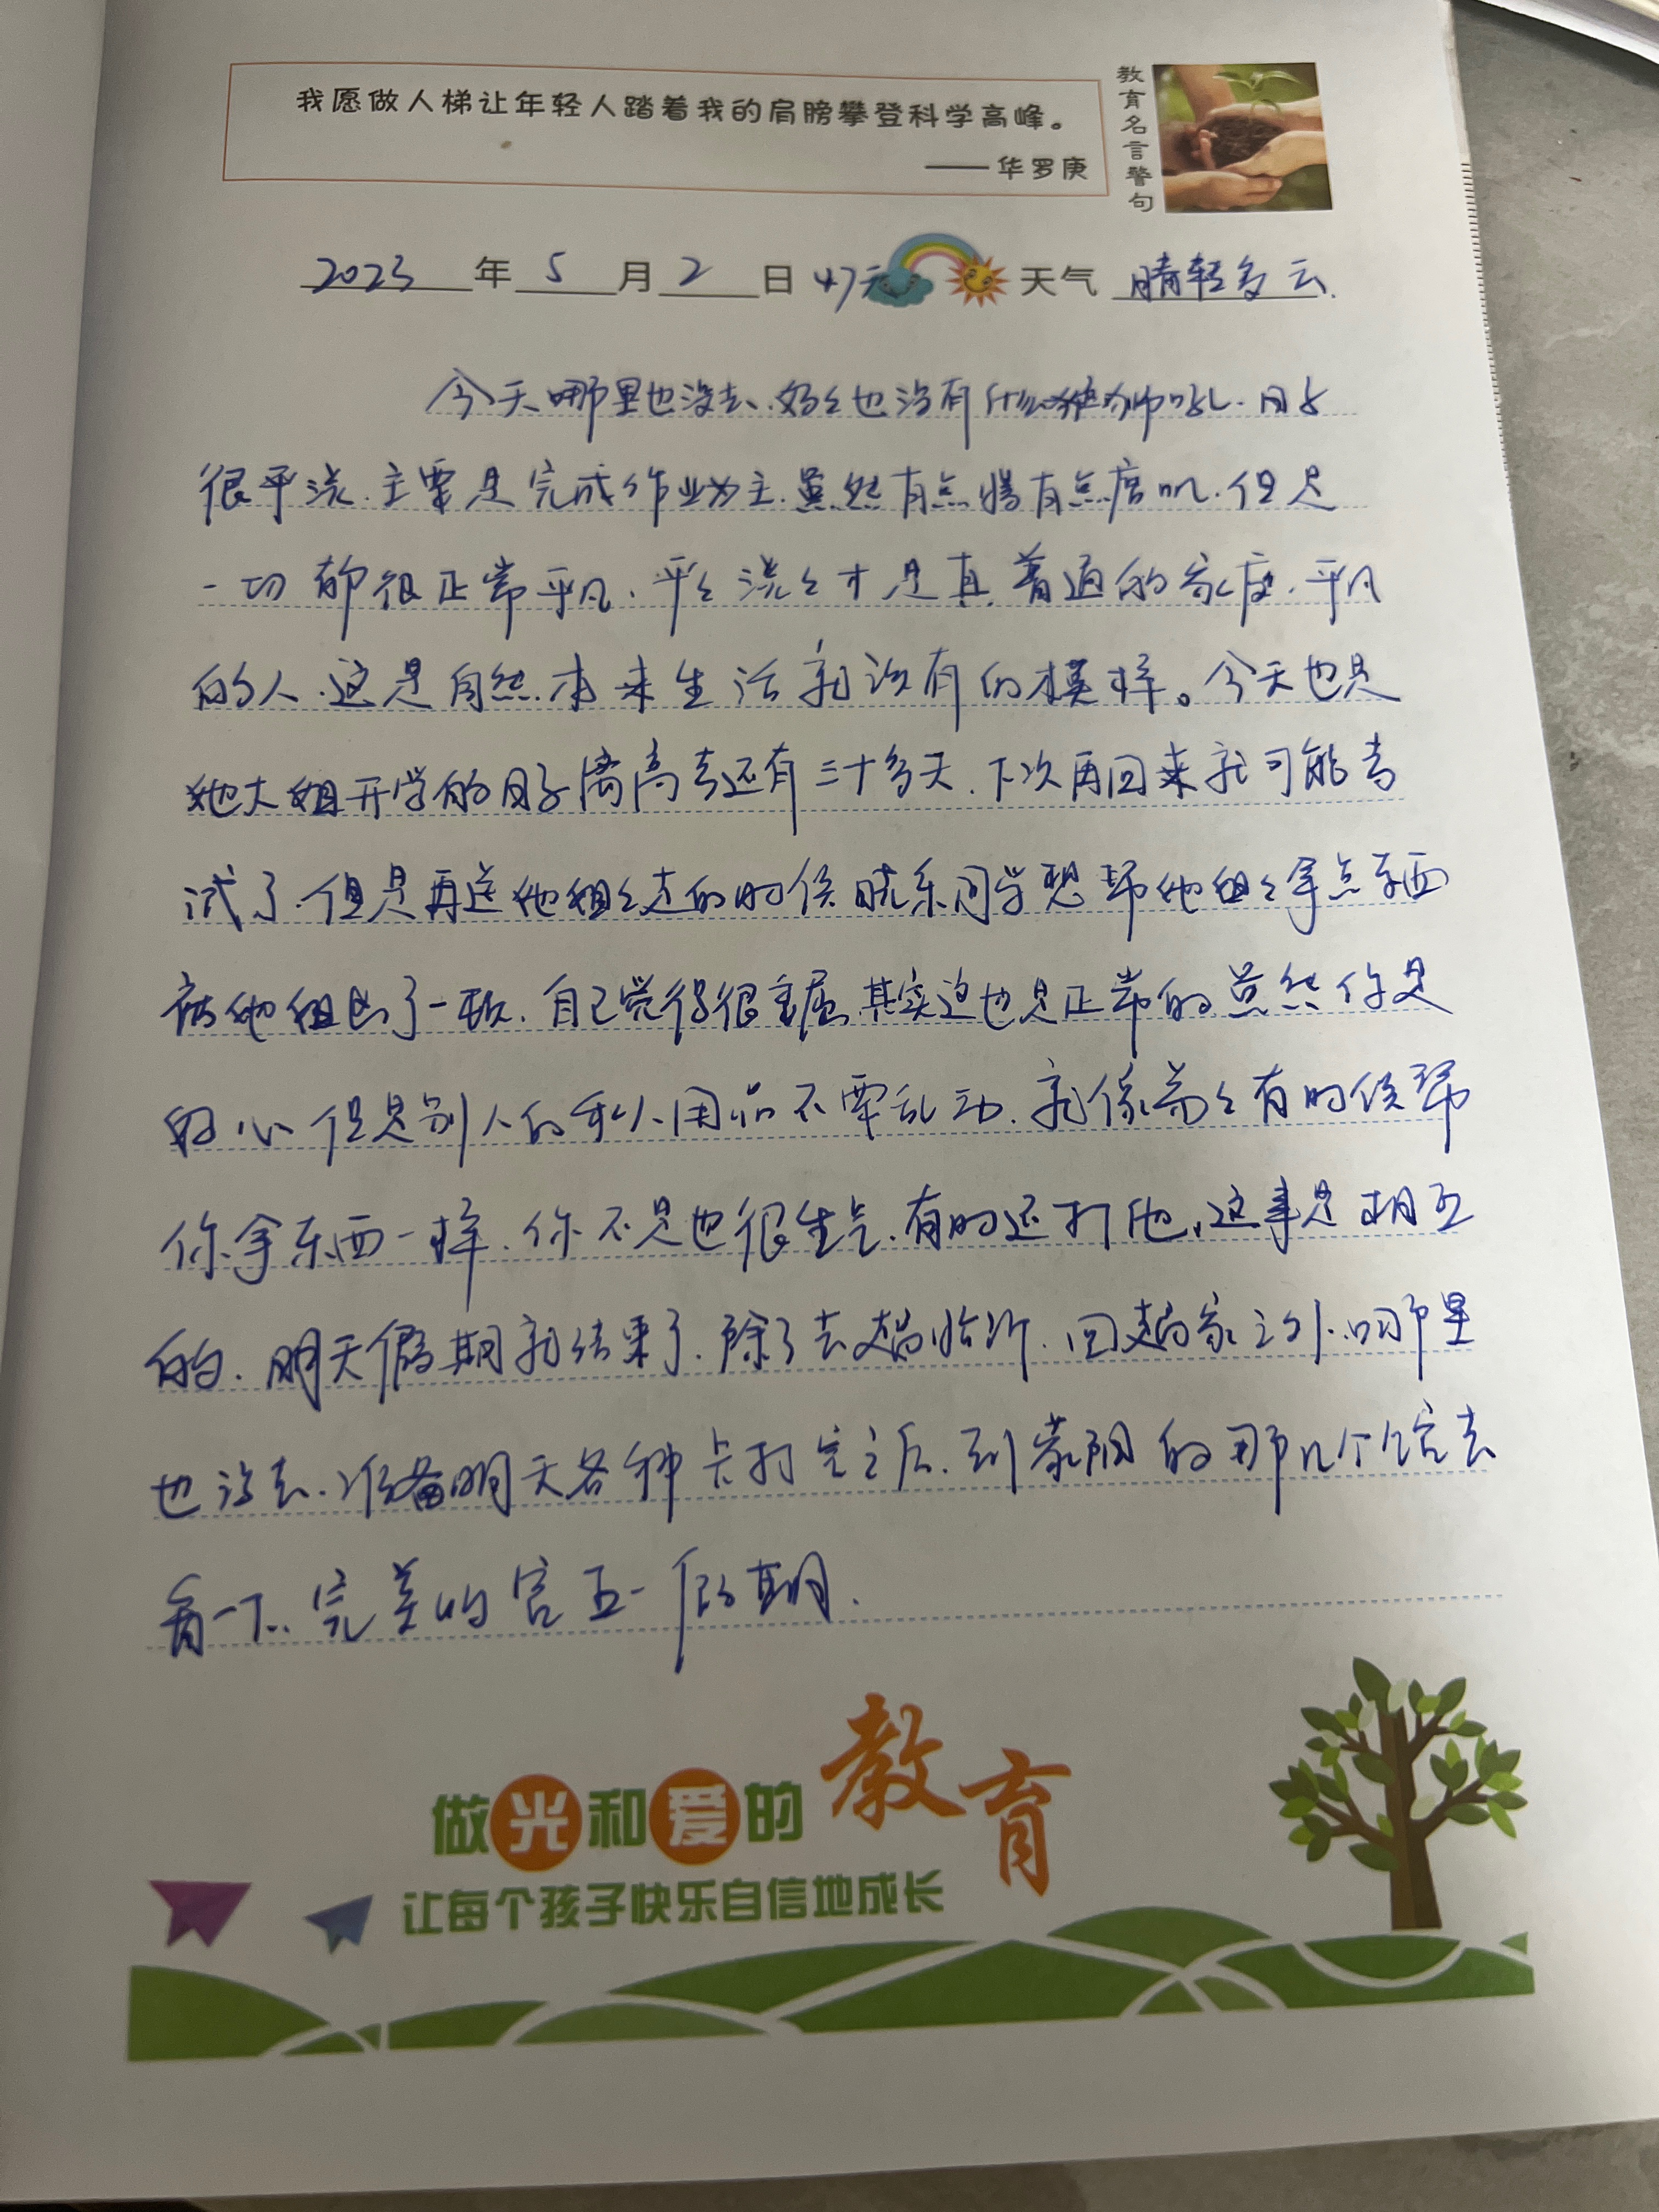 我愿做人梯让年轻人踏着我的肩膀攀登科学高峰。
——华罗庚
教育名言警句
2023年5月2日 47天 天气 晴转多云.
今天哪里也没去.妈妈也没有什么狮吼.日子
很平淡.主要是完成作业为主.虽然有点有点.但是
一切都很正常平凡.平平淡淡才是真.普通的家庭.平凡
的人.这是自然.本来生活就该有的模样。今天也是
她大姐开学的日子离高考还有三十多天.下次再回来就可能考
试了.但是再送他姐姐走的时候晓东同学想帮他姐姐拿点东西
被他姐凶了一顿.自己觉得很委屈.其实这也是正常的.虽然你是
好心但是别人的私人用品不要乱动.就像有的时候帮
你拿东西一样.你不是也很生气.有时还打他,这事是相互
的.明天假期就结束了.除了去趟临沂.回趟家之外.哪里
也没去.准备明天各种卡打完之后.到蒙阴的那几个馆去
看一下.完美的五一假期.
做光和爱的教育
让每个孩子快乐自信地成长